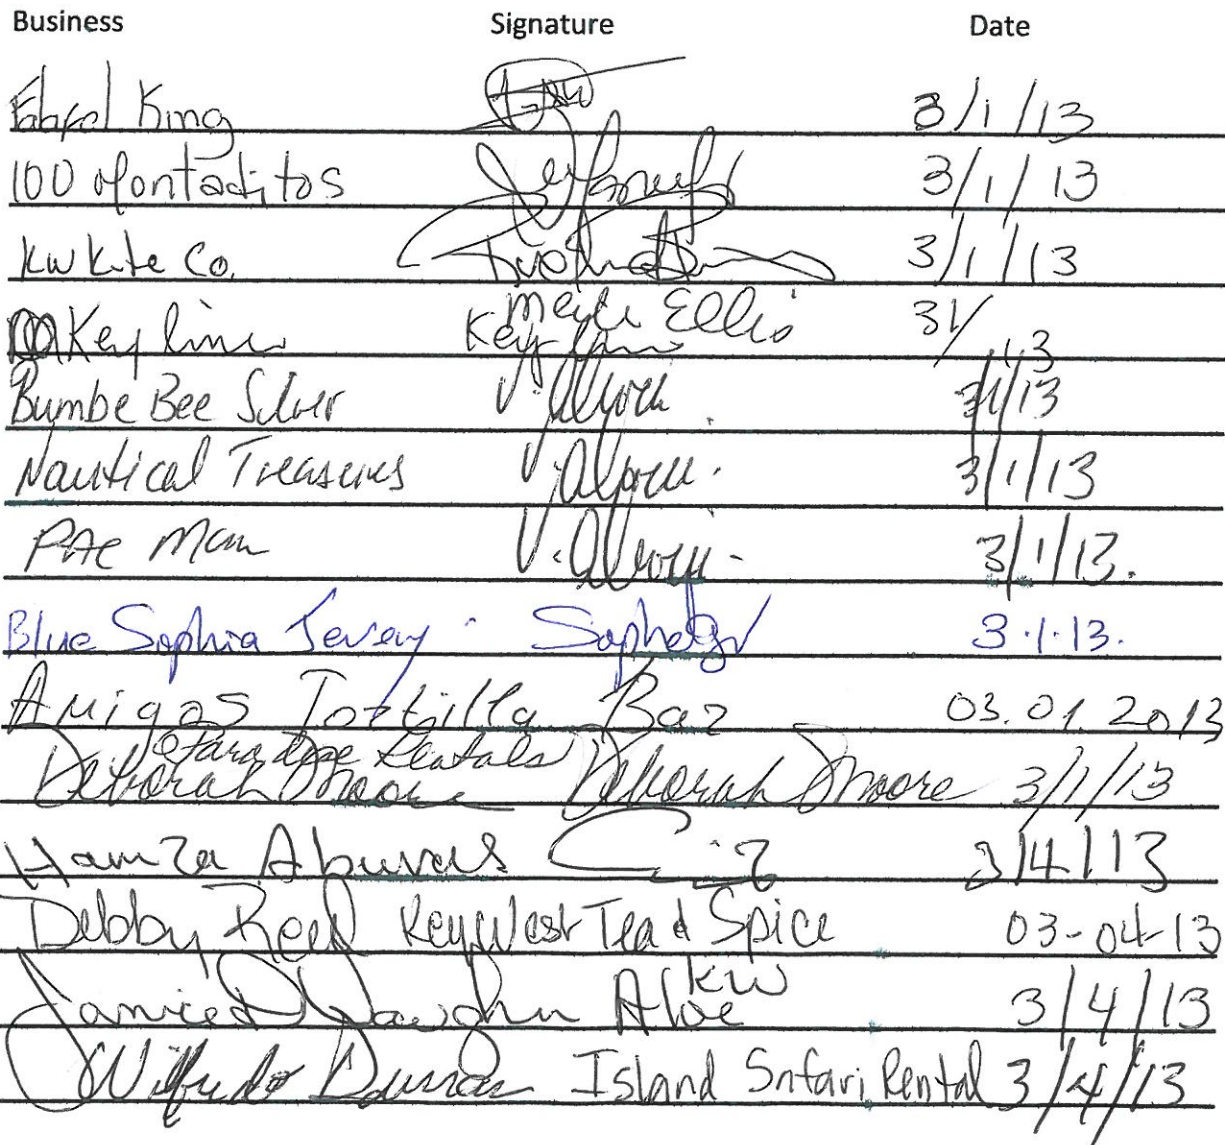 Business Signature Date
King 3/1/13
100 Montaditos 3/1/13
KW Kite Co. 3/1/13
Key lime Merle Ellis Key lime 3/1/13
Bumbe Bee Silver V. 3/1/13
Nautical Treasures V. 3/1/13
PAC Man V. 3/1/13.
Blue Sophia 3.1.13.
Amigos Tortilla Bar 03.01.2013
Paradise Rentals
Deborah Moore Deborah Moore 3/1/13
Hamza 3/4/13
Debby Reed Key West Tea & Spice 03-04-13
Janice Vaughn KW Aloe 3/4/13
Wilfredo Duran Island Safari Rental 3/4/13